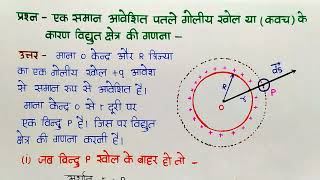 प्रश्न - एक समान आवेशित पतले गोलीय खोल या (कवच) के
कारण विद्युत क्षेत्र की गणना -
उत्तर - माना O केन्द्र और R त्रिज्या
का एक गोलीय खोल +q आवेश
से समान रूप से आवेशित है।
माना केन्द्र O से r दूरी पर
एक बिन्दु P है। जिस पर विद्युत
क्षेत्र की गणना करनी है।
(i) जब बिन्दु P खोल के बाहर हो तो -
R
r
O
P